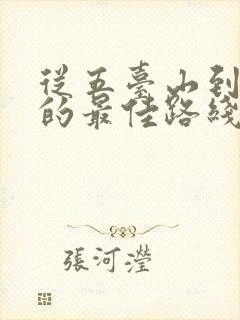 從五臺山到
的最佳路綫
張河瀅